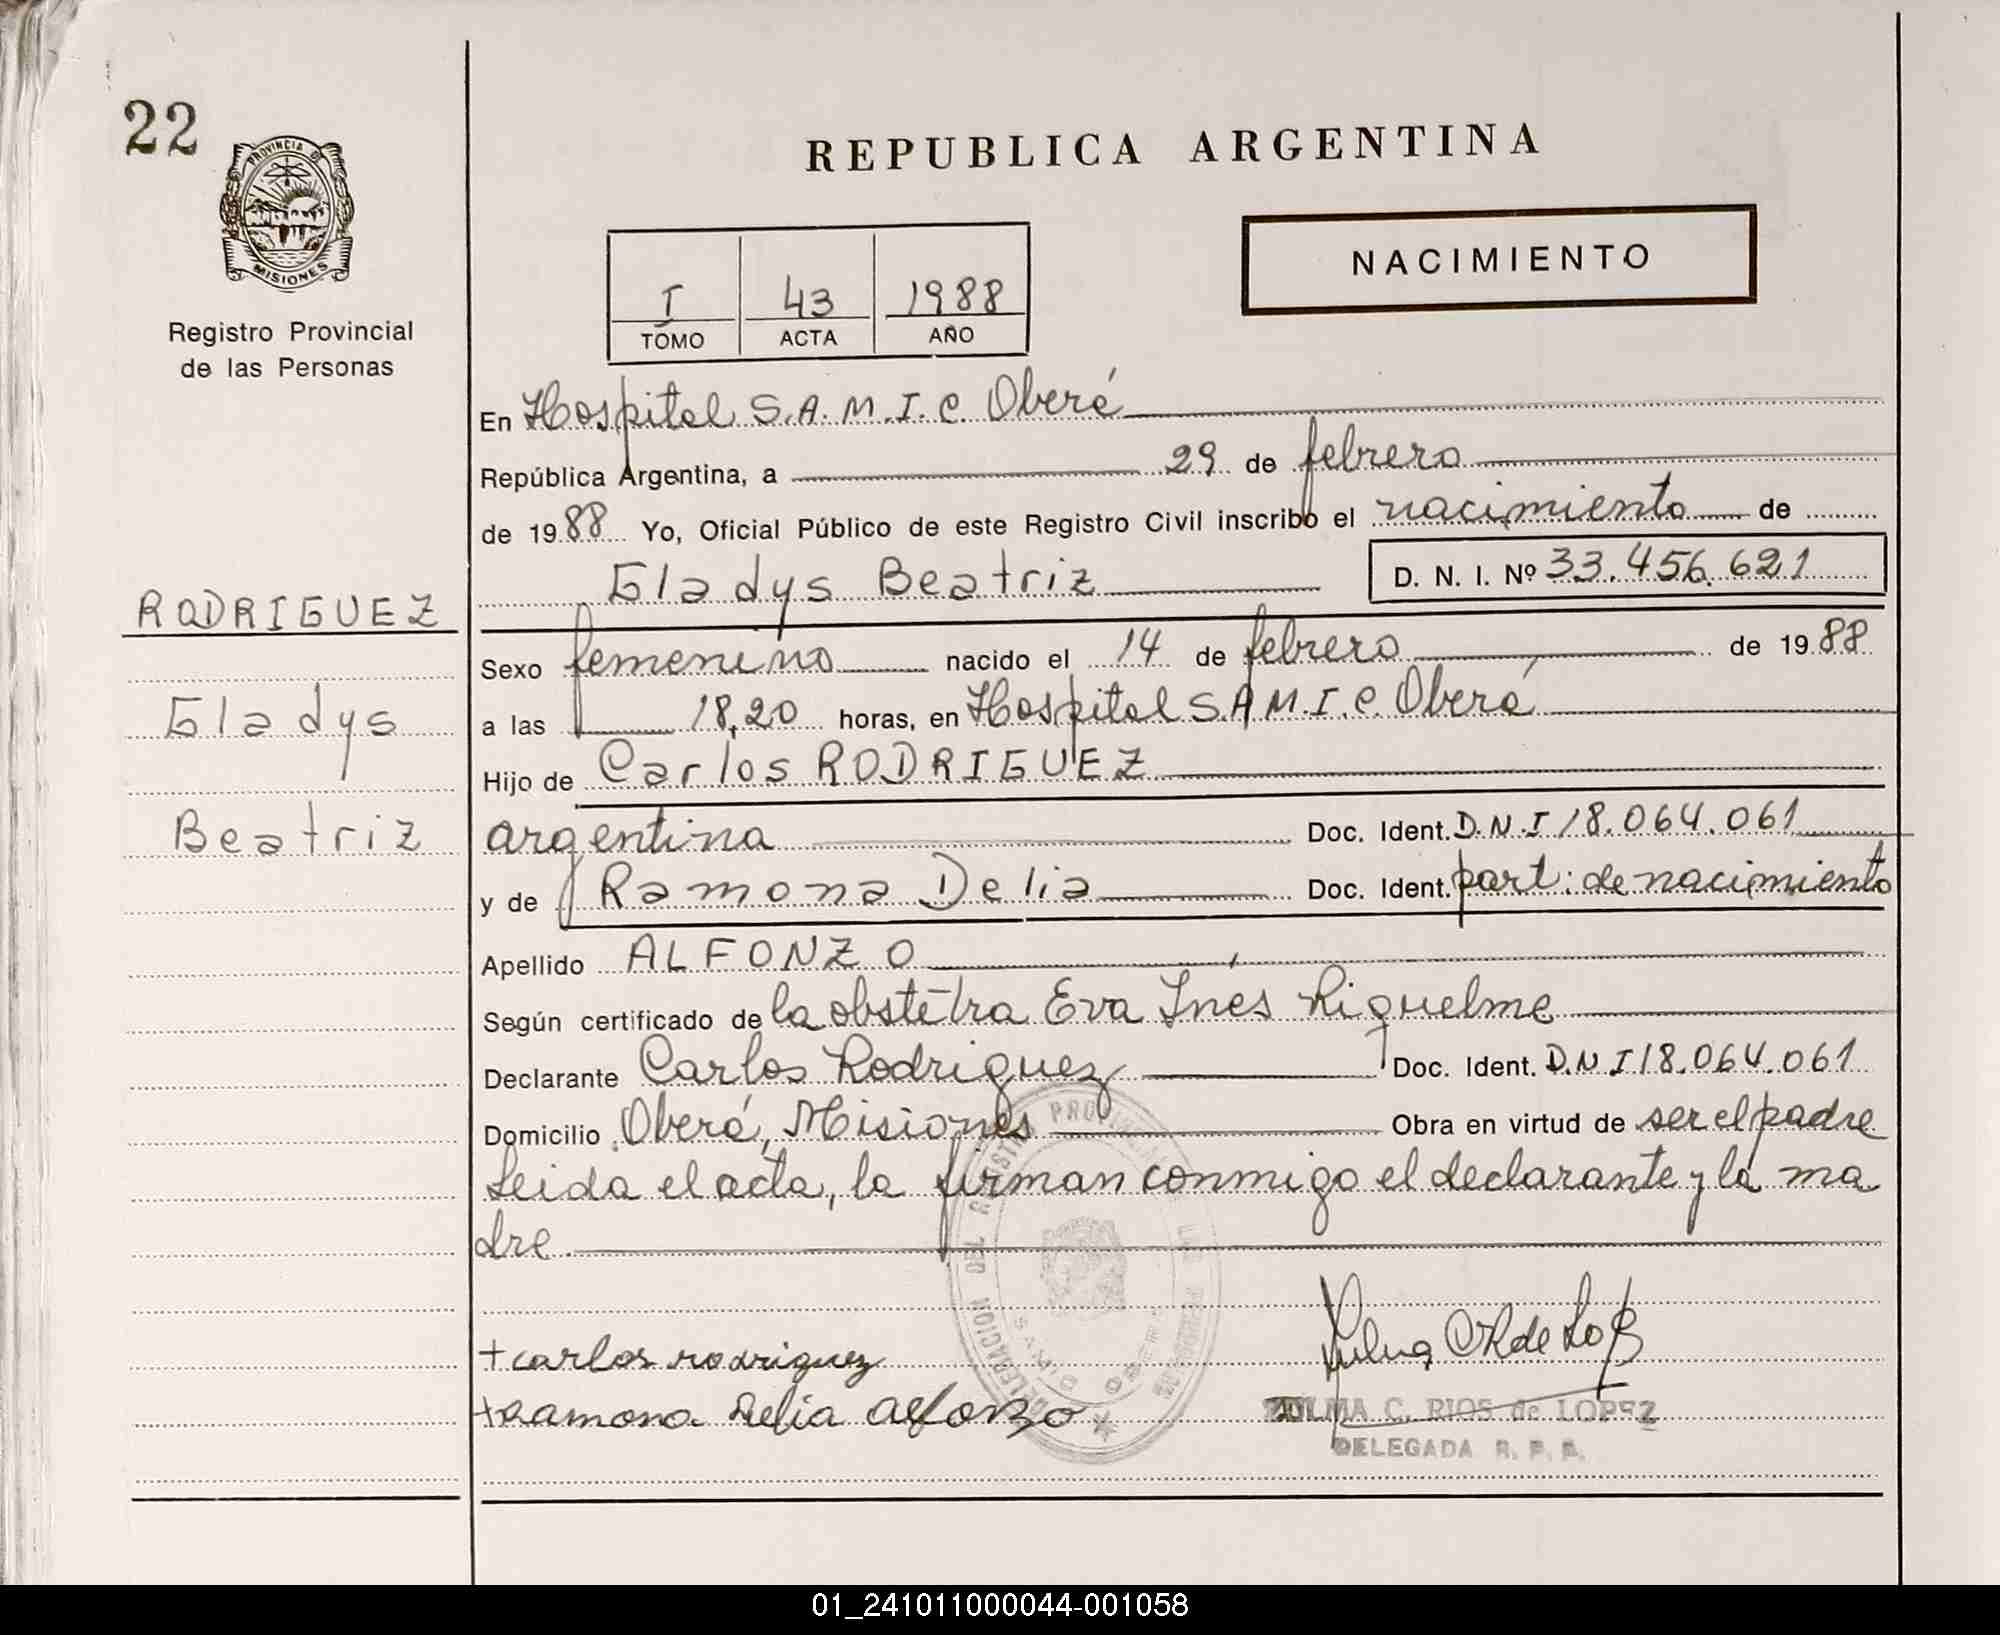 22
PROVINCIA DE
MISIONES
Registro Provincial
de las Personas
REPUBLICA ARGENTINA
NACIMIENTO
I 43 1988
TOMO ACTA AÑO
En Hospital S.A.M.I.C. Oberá
República Argentina, a 29 de febrero
de 1988 Yo, Oficial Público de este Registro Civil inscribo el nacimiento de
Gladys Beatriz D. N. I. Nº 33.456.621
RODRIGUEZ
Gladys
Beatriz
Sexo femenino nacido el 14 de febrero de 1988
a las 18,20 horas, en Hospital S.A.M.I.C. Oberá
Hijo de Carlos RODRIGUEZ
argentina Doc. Ident. D.N.I 18.064.061
y de Ramona Delia Doc. Ident. part: de nacimiento
Apellido ALFONZO
Según certificado de la obstétra Eva Inés Riquelme
Declarante Carlos Rodriguez Doc. Ident. D.N I 18.064.061
Domicilio Oberá, Misiones Obra en virtud de ser el padre
Leida el acta, la firman conmigo el declarante y la ma
dre
+ carlos rodriguez
+ Ramona Delia Alfonzo
DELEGACION DEL REGISTRO PROVINCIAL DE LAS PERSONAS
ZULMA C. RIOS de LOPEZ
DELEGADA R. P. P.
01_241011000044-001058